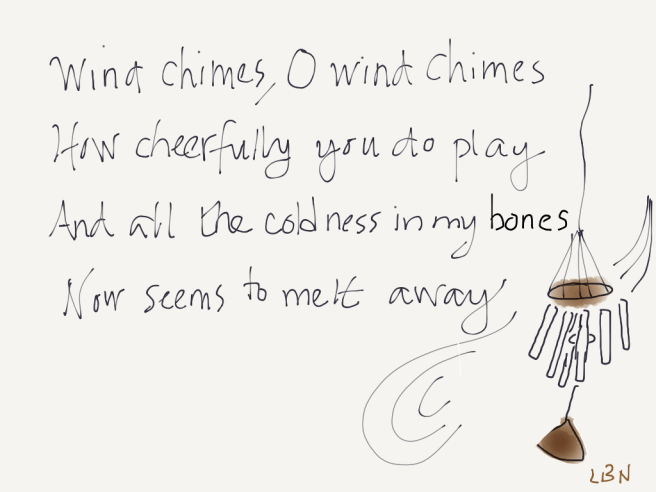 Wind chimes, O wind chimes
How cheerfully you do play
And all the coldness in my bones
Now seems to melt away
LBN